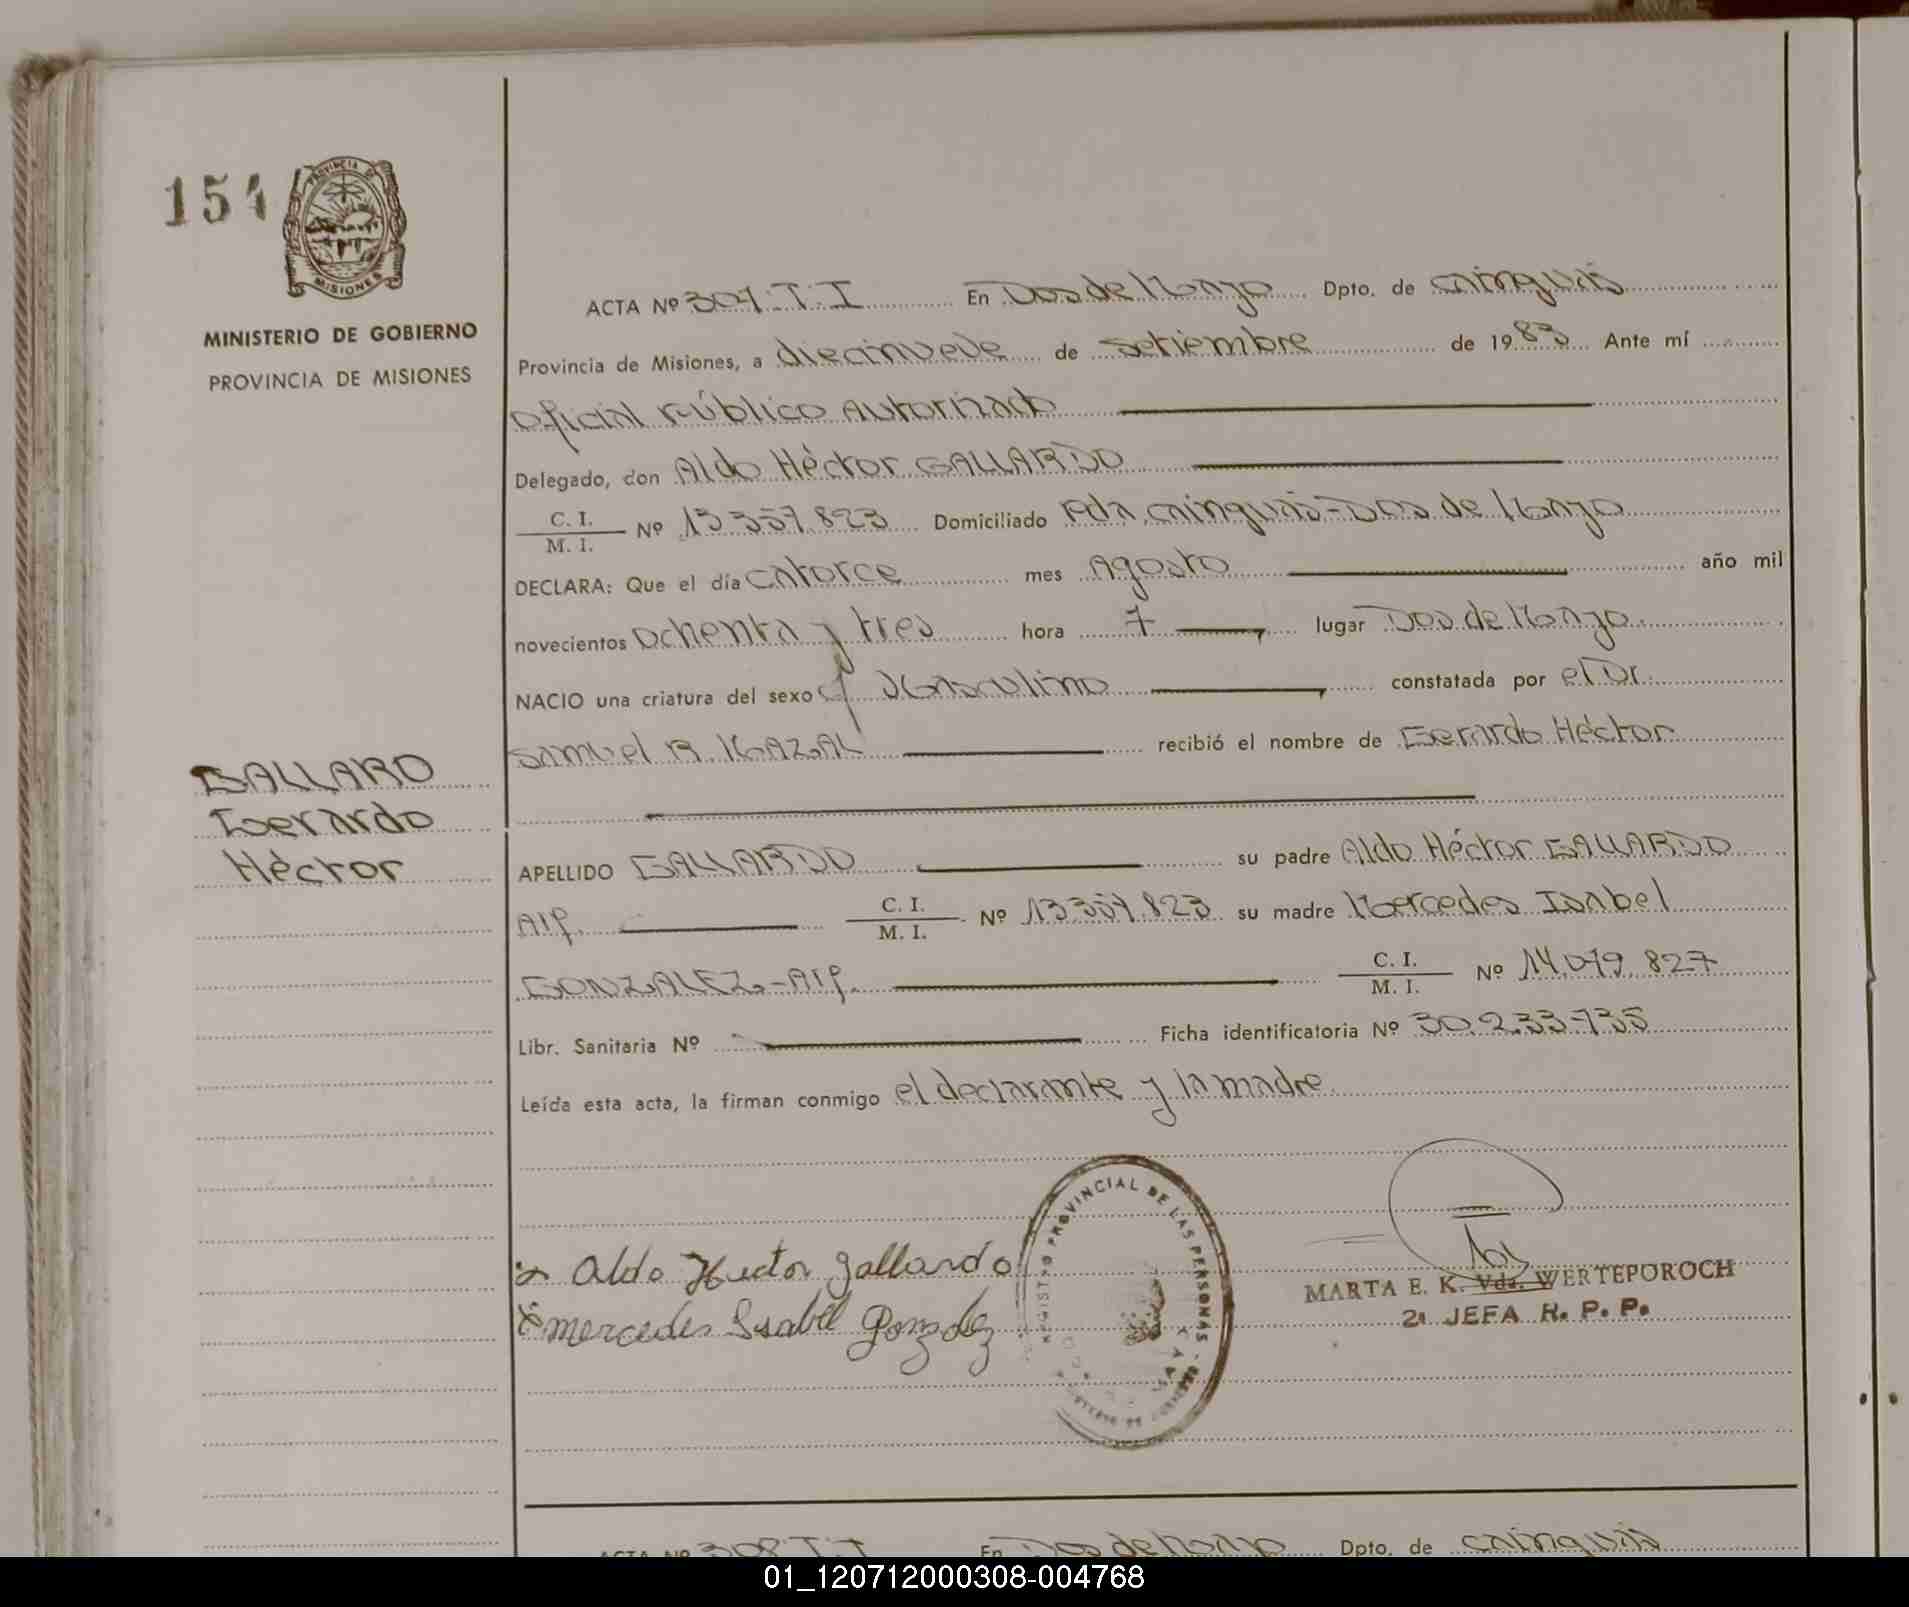 154
PROVINCIA DE
MISIONES
MINISTERIO DE GOBIERNO
PROVINCIA DE MISIONES
ACTA Nº 307.T.I En Dos de Mayo Dpto. de Cainguás
Provincia de Misiones, a diecinueve de setiembre de 1983 Ante mí
Oficial Público Autorizado
Delegado, don Aldo Héctor GALLARDO
C. I. / M. I. Nº 13.357.823 Domiciliado Pda. Cainguás-Dos de Mayo
DECLARA: Que el día catorce mes Agosto año mil
novecientos ochenta y tres hora 7 lugar Dos de Mayo.
NACIO una criatura del sexo Masculino constatada por el Dr.
Samuel R. recibió el nombre de Gerardo Héctor
GALLARD
Gerardo
Héctor
APELLIDO GALLARDO su padre Aldo Héctor GALLARDO
Arg. C. I. / M. I. Nº 13.357.823 su madre Mercedes Isabel
GONZALEZ-Arg. C. I. / M. I. Nº 14.079.827
Libr. Sanitaria Nº Ficha identificatoria Nº 30.233.735
Leída esta acta, la firman conmigo el declarante y la madre
Aldo Hector Gallardo
Mercedes Isabel Gonzalez
REGISTRO PROVINCIAL DE LAS PERSONAS
MARTA E. K. Vda. WERTEPOROCH
2a JEFA R. P. P.
ACTA Nº 308.T.I En Dos de Mayo Dpto. de Cainguás
01_120712000308-004768